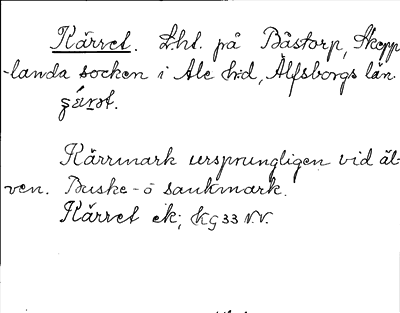 Kärret. Lht. på Båstorp, Skepp
-landa socken i Ale hd, Älfsborgs län.
Kärrmark ursprungligen vid äl-
ven. Buske- o sankmark.
Kärret ek; KG 33 N.V.